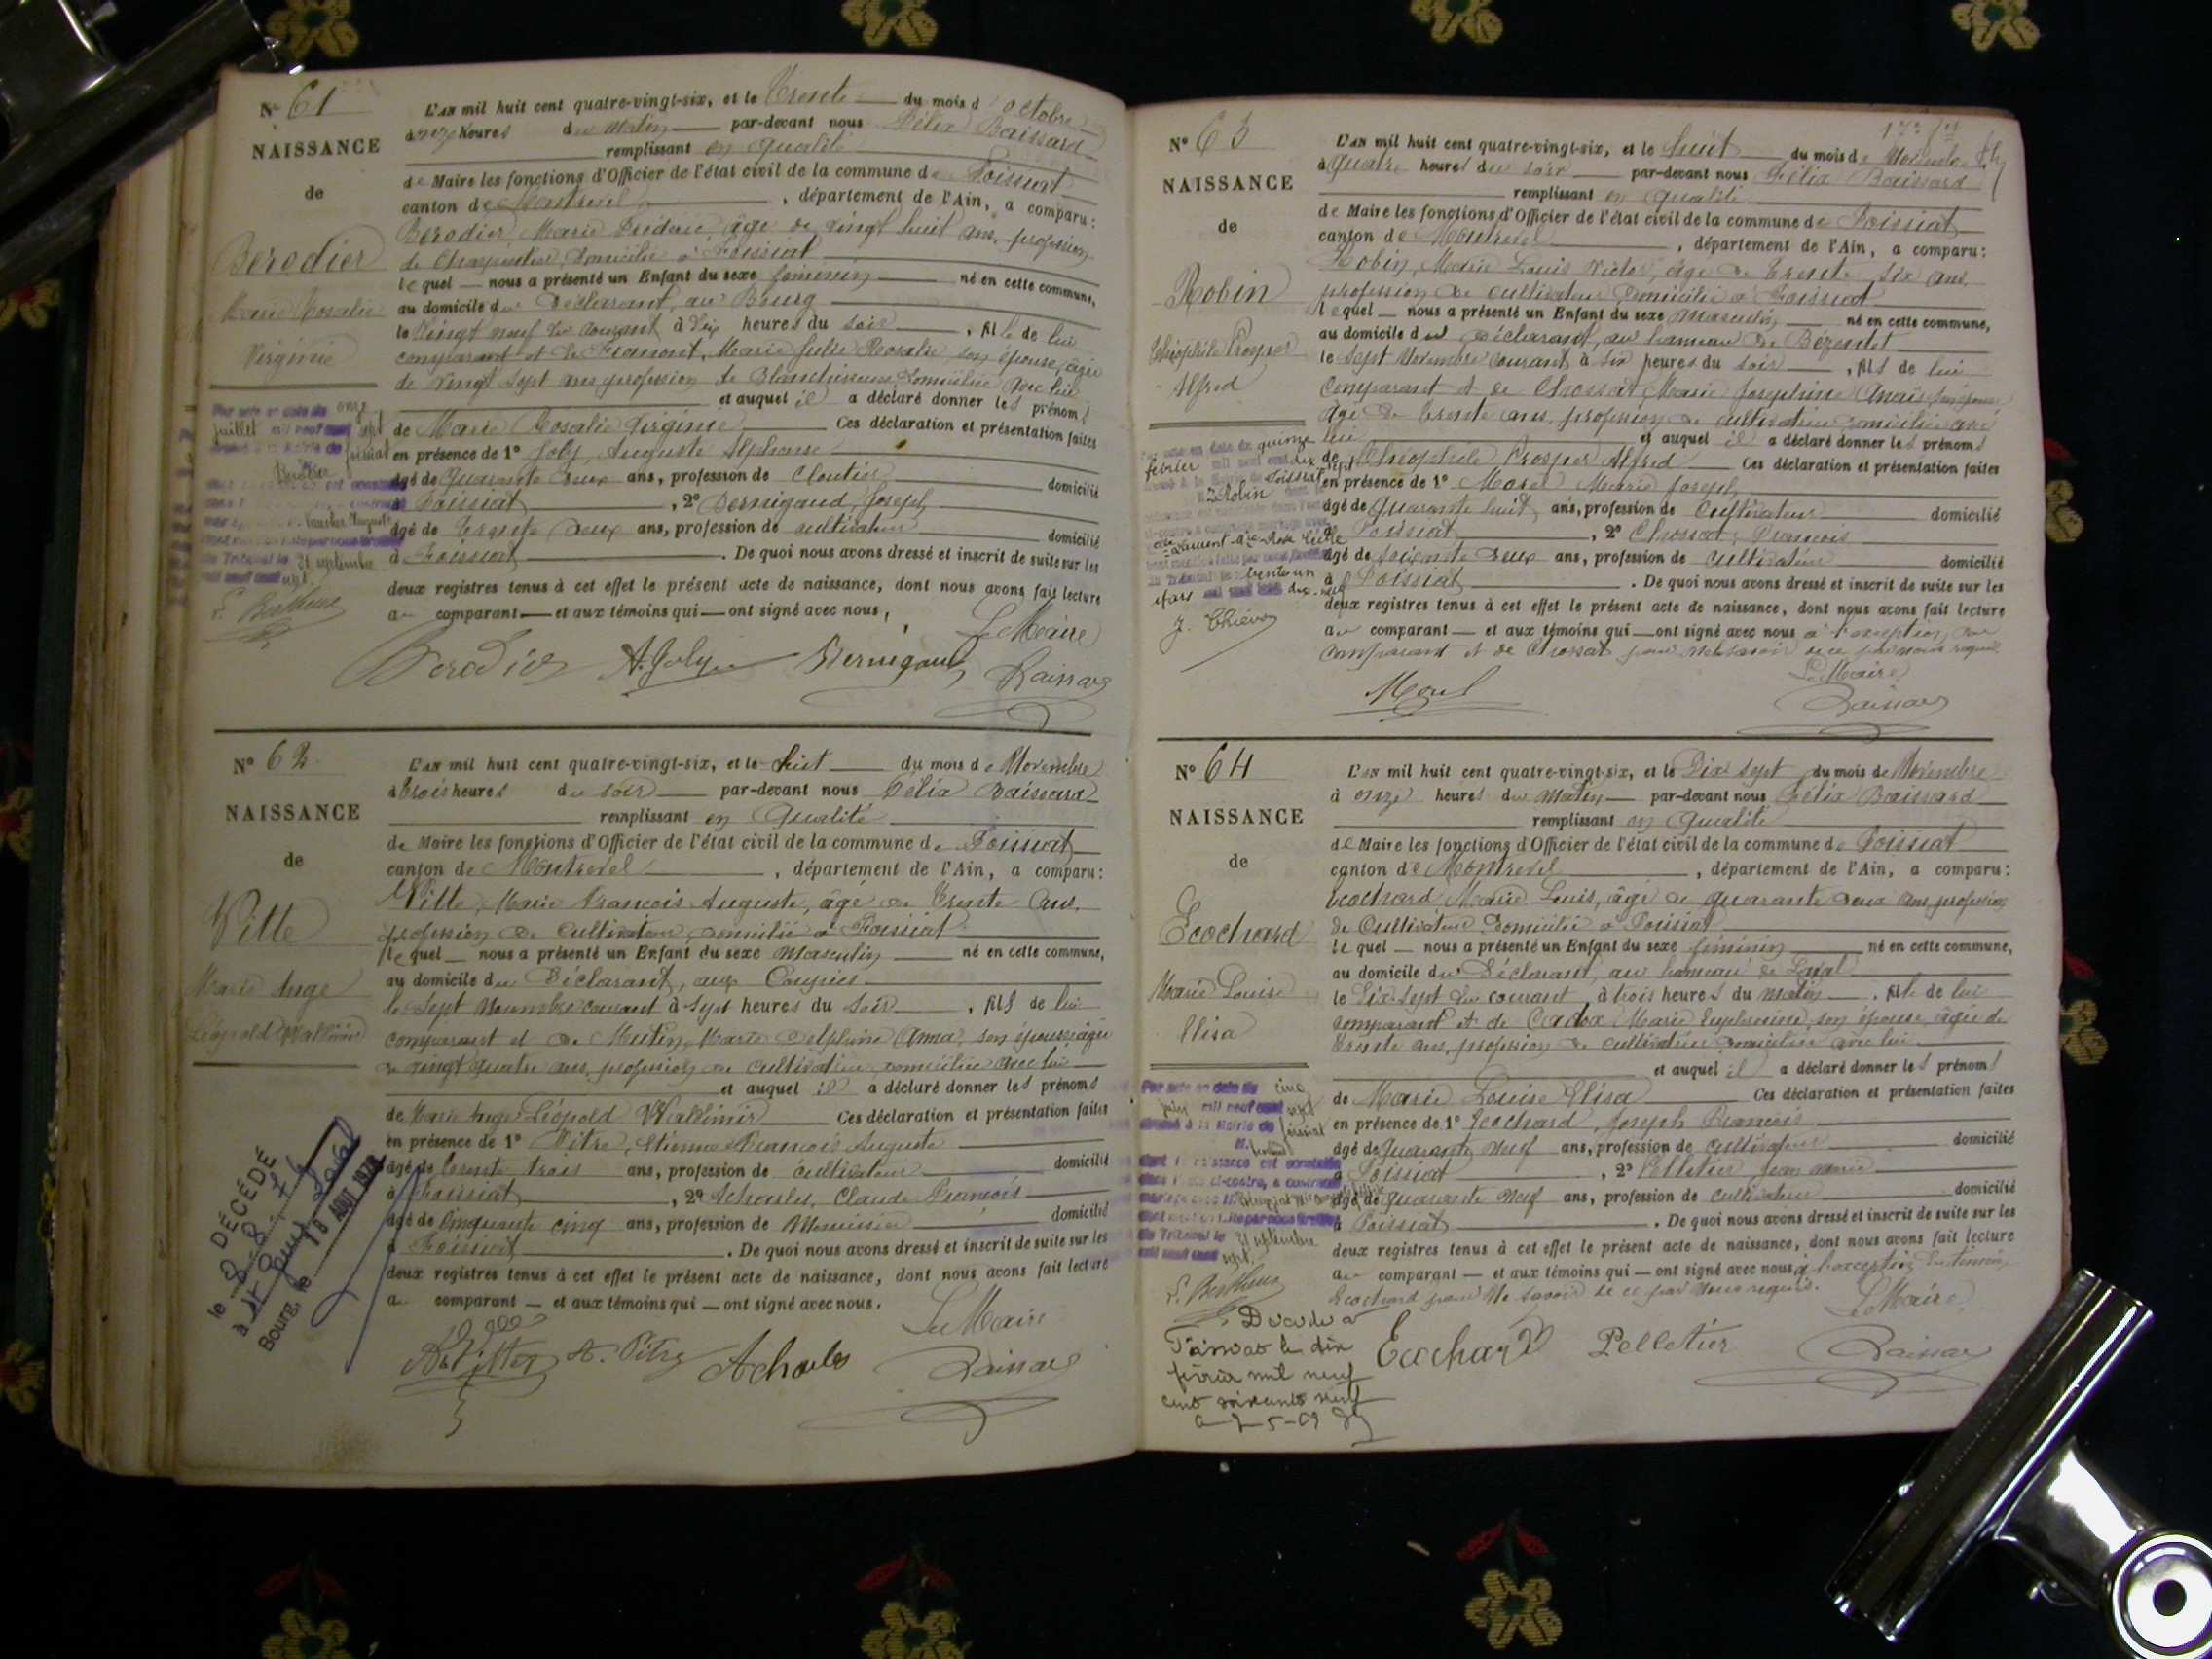 N° 61
NAISSANCE
de
Berodier
Marie Rosalie
Virginie
L'AN mil huit cent quatre-vingt-six, et le Trente du mois d'octobre
à onze heures du matin par-devant nous Félix Baissard
remplissant en qualité
de Maire les fonctions d'Officier de l'état civil de la commune de Foissiat
canton de Montrevel, département de l'Ain, a comparu:
Berodier Marie Frédéric âgé de vingt huit ans, profession
de Charpentier, domicilié à Foissiat
lequel nous a présenté un Enfant du sexe féminin né en cette commune,
au domicile du Déclarant, au Bourg
le Vingt neuf du courant à dix heures du soir, fille de lui
comparant et de Marie Julie Rosalie, son épouse, âgée
de vingt sept ans profession de Blanchisseuse domiciliée avec lui
et auquel il a déclaré donner les prénoms
de Marie Rosalie Virginie Ces déclaration et présentation faites
en présence de 1° Joly, Auguste Alphonse
âgé de Quarante deux ans, profession de Cloutier domicilié
à Foissiat, 2° Bernigaud Joseph
âgé de trente deux ans, profession de cultivateur domicilié
à Foissiat. De quoi nous avons dressé et inscrit de suite sur les
deux registres tenus à cet effet le présent acte de naissance, dont nous avons fait lecture
au comparant et aux témoins qui ont signé avec nous,
Le Maire
Berodier A. Joly Bernigaud Baissard
N° 62
NAISSANCE
de
Pitte
Marie Ange
Léopold Wallimir
DÉCÉDÉ
le 8-8-74
à St Paul
Bourg, le 16 AOUT 1974
L'AN mil huit cent quatre-vingt-six, et le huit du mois de Novembre
à trois heures du soir par-devant nous Félix Baissard
remplissant en Qualité
de Maire les fonctions d'Officier de l'état civil de la commune de Foissiat
canton de Montrevel, département de l'Ain, a comparu:
Pitte, Marie François Auguste, âgé de trente ans,
profession de cultivateur domicilié à Foissiat
lequel nous a présenté un Enfant du sexe masculin né en cette commune,
au domicile du Déclarant, aux
le sept Novembre courant à sept heures du soir, fils de lui
comparant et de Mutin, Marie Delphine Anna, son épouse, âgée
de vingt quatre ans, profession de cultivatrice domiciliée avec lui
et auquel il a déclaré donner les prénoms
de Marie Ange Léopold Wallimir Ces déclaration et présentation faites
en présence de 1° Pitre, Etienne François Auguste
âgé de trente trois ans, profession de cultivateur domicilié
à Foissiat, 2° Achoules, Claude François
âgé de Cinquante cinq ans, profession de Menuisier domicilié
à Foissiat. De quoi nous avons dressé et inscrit de suite sur les
deux registres tenus à cet effet le présent acte de naissance, dont nous avons fait lecture
au comparant et aux témoins qui ont signé avec nous.
Le Maire
A. Pitre Achoules Baissard
N° 63
NAISSANCE
de
Robin
Théophile Prosper
Alfred
L'AN mil huit cent quatre-vingt-six, et le huit du mois de Novembre
à quatre heures du soir par-devant nous Félix Baissard
remplissant en qualité
de Maire les fonctions d'Officier de l'état civil de la commune de Foissiat
canton de Montrevel, département de l'Ain, a comparu:
Robin, Marie Louis Victor, âgé de trente six ans,
profession de cultivateur domicilié à Foissiat
lequel nous a présenté un Enfant du sexe masculin né en cette commune,
au domicile du déclarant, au hameau de Bézentet
le sept Novembre courant à six heures du soir, fils de lui
comparant et de Chossat, Marie Joséphine Anaïs son épouse
âgée de trente ans, profession de cultivatrice domiciliée avec
lui et auquel il a déclaré donner les prénoms
de Théophile Prosper Alfred Ces déclaration et présentation faites
en présence de 1° Morel Marie Joseph
âgé de quarante huit ans, profession de Cultivateur domicilié
à Foissiat, 2° Chossat, François
âgé de soixante deux ans, profession de cultivateur domicilié
à Foissiat. De quoi nous avons dressé et inscrit de suite sur les
deux registres tenus à cet effet le présent acte de naissance, dont nous avons fait lecture
au comparant et aux témoins qui ont signé avec nous à l'exception du
comparant et de Chossat pour ne le savoir de ce par nous requis.
Le Maire
Morel Baissard
N° 64
NAISSANCE
de
Ecochard
Marie Louise
Elisa
L'AN mil huit cent quatre-vingt-six, et le Dix sept du mois de Novembre
à onze heures du matin par-devant nous Félix Baissard
remplissant en Qualité
de Maire les fonctions d'Officier de l'état civil de la commune de Foissiat
canton de Montrevel, département de l'Ain, a comparu:
Ecochard Marie Louis, âgé de quarante deux ans, profession
de Cultivateur domicilié à Foissiat
lequel nous a présenté un Enfant du sexe féminin né en cette commune,
au domicile du Déclarant, au hameau de
le Dix sept du courant, à trois heures du matin, fille de lui
comparant et de Marie Euphrosine, son épouse, âgée de
trente ans, profession de cultivatrice domiciliée avec lui
et auquel il a déclaré donner les prénoms
de Marie Louise Elisa Ces déclaration et présentation faites
en présence de 1° Ecochard, Joseph François
âgé de quarante neuf ans, profession de cultivateur domicilié
à Foissiat, 2° Pelletier Jean Marie
âgé de quarante neuf ans, profession de cultivateur domicilié
à Foissiat. De quoi nous avons dressé et inscrit de suite sur les
deux registres tenus à cet effet le présent acte de naissance, dont nous avons fait lecture
au comparant et aux témoins qui ont signé avec nous à l'exception du témoin
Ecochard pour ne savoir de ce par nous requis.
Le Maire
Ecochard Pelletier Baissard
Décédée à
Foissiat le dix
février mil neuf
cent soixante neuf